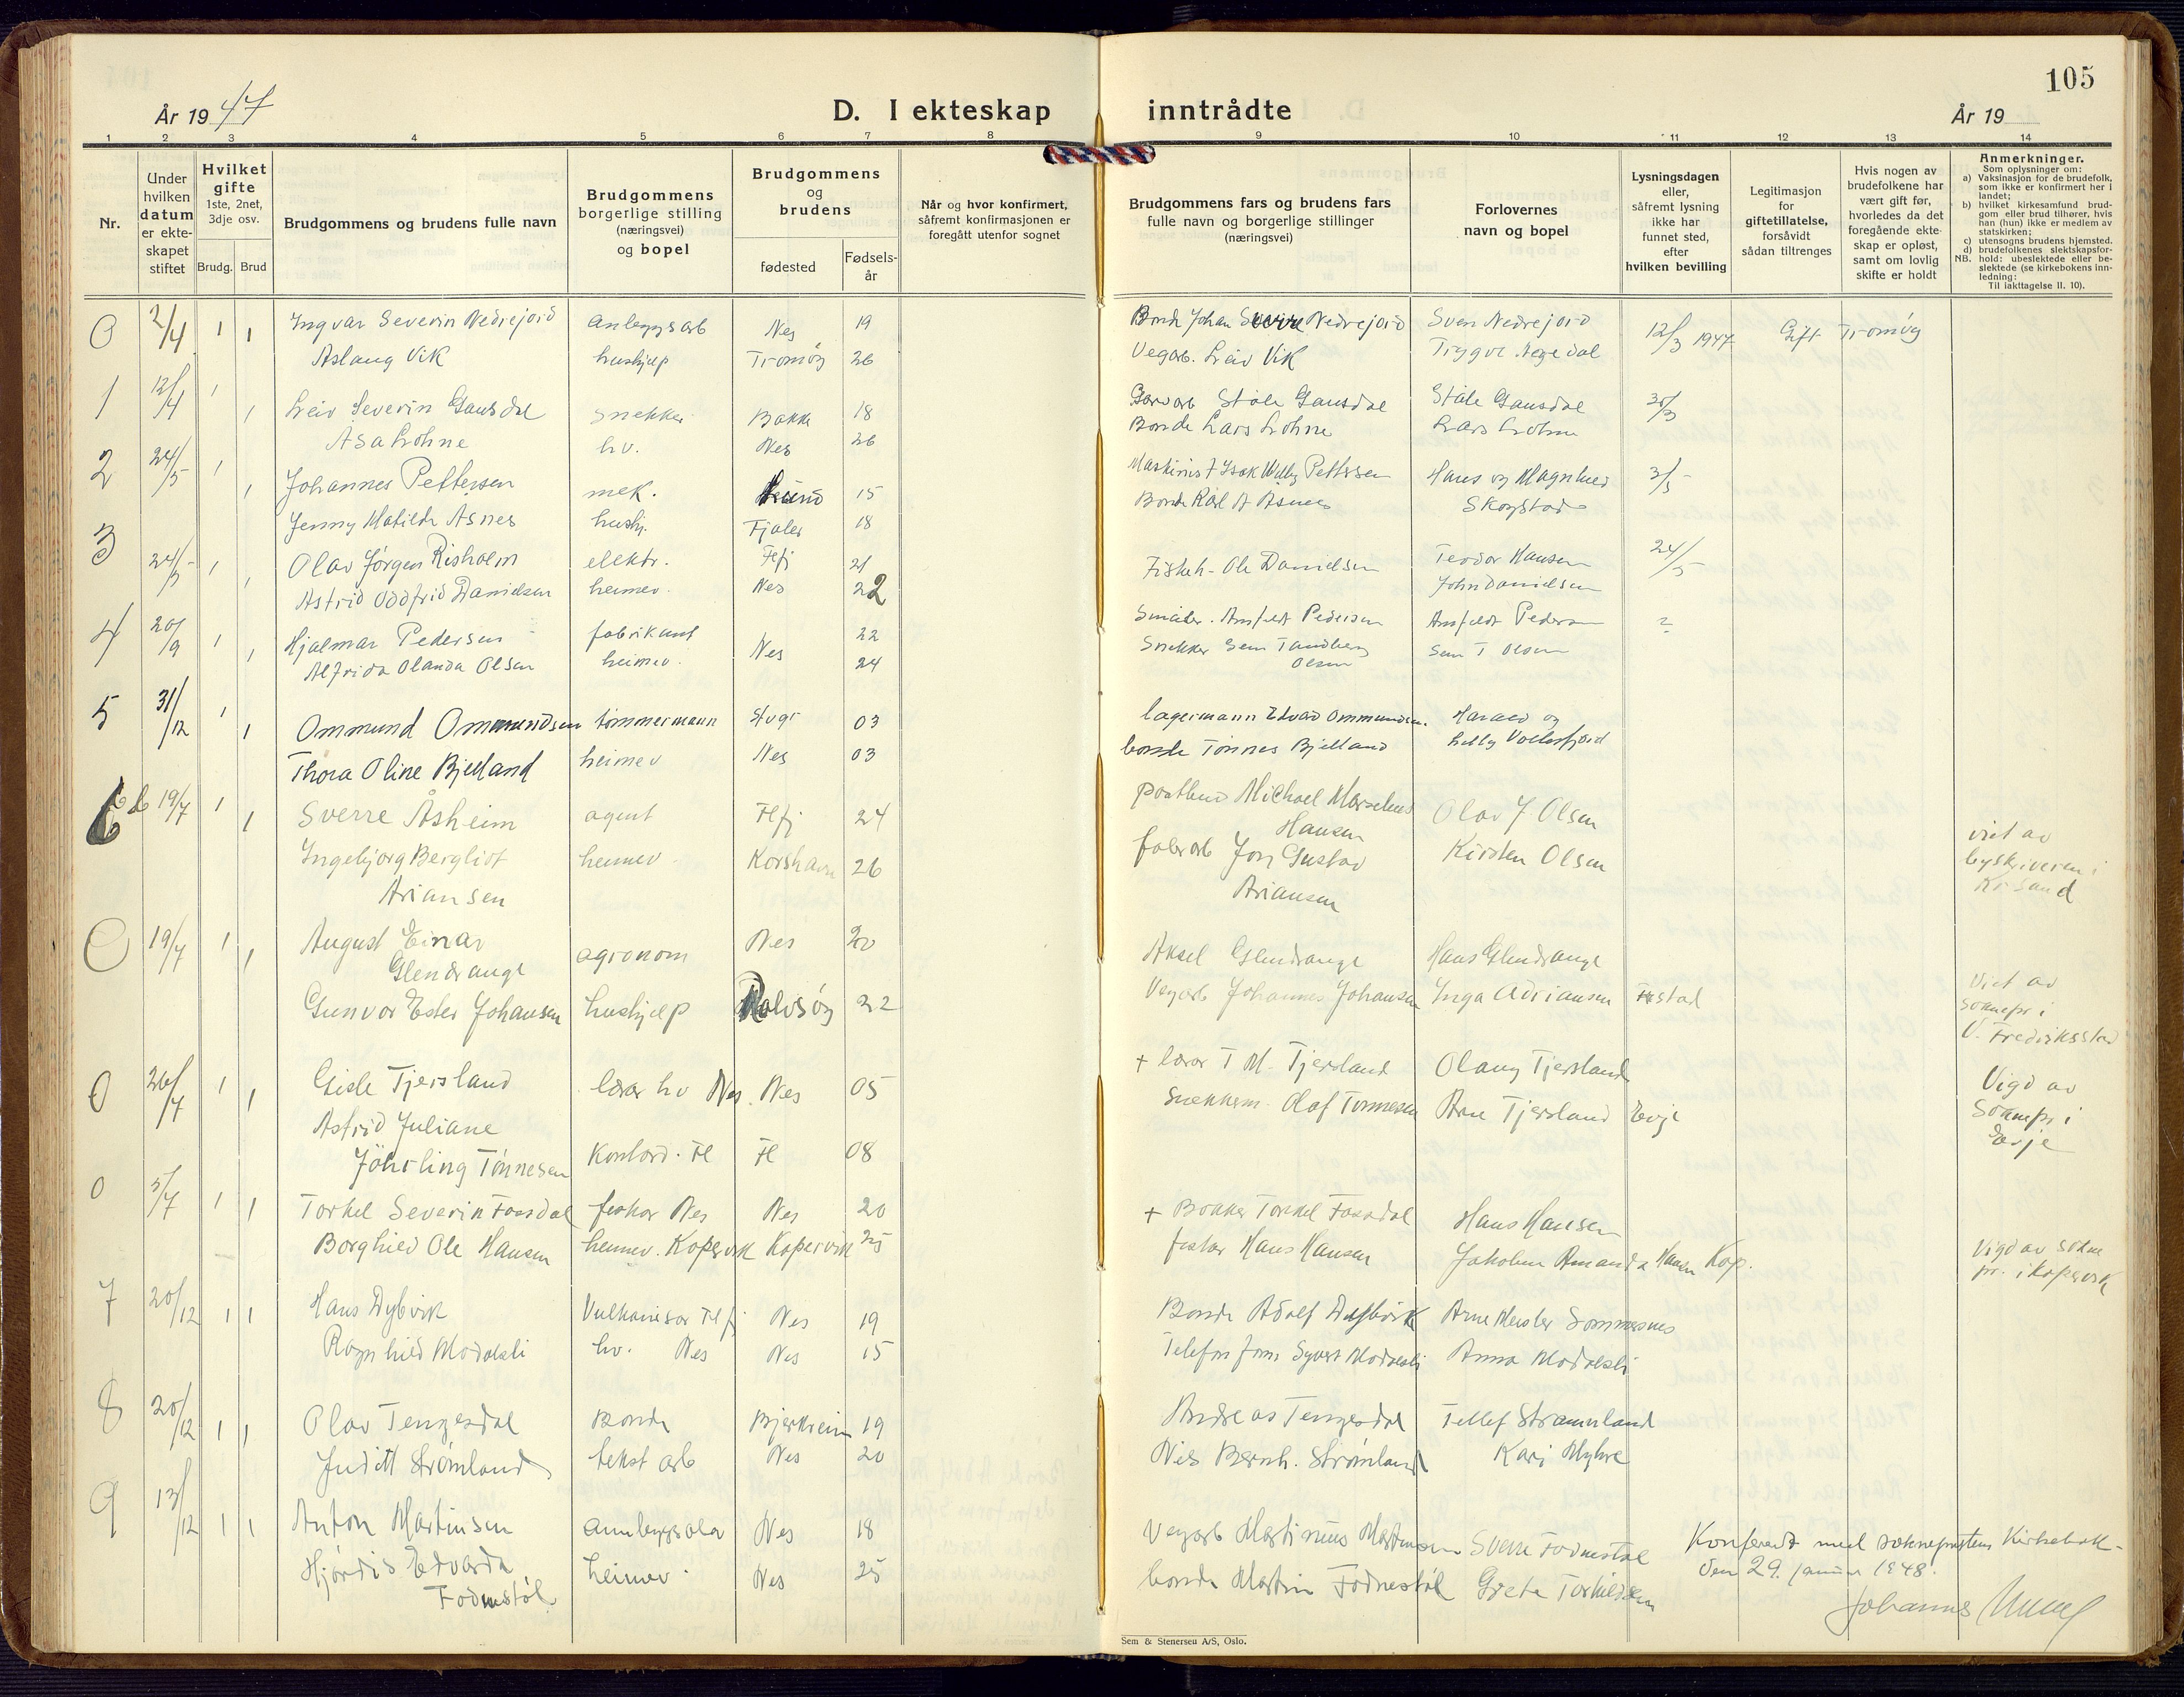 105
År 1947
D. I ekteskap inntrådte
År 19
1 2 3 4 5 6 7 8 9 10 11 12 13 14
Nr.
Under hvilken datum er ekteskapet stiftet
Hvilket gifte 1ste, 2net, 3dje osv.
Brudg. Brud
Brudgommens og brudens fulle navn
Brudgommens borgerlige stilling (næringsvei) og bopel
Brudgommens og brudens
fødested
Fødselsår
Når og hvor konfirmert, såfremt konfirmasjonen er foregått utenfor sognet
Brudgommens fars og brudens fars fulle navn og borgerlige stillinger (næringsvei)
Forlovernes navn og bopel
Lysningsdagen eller, såfremt lysning ikke har funnet sted, efter hvilken bevilling
Legitimasjon for giftetillatelse, forsåvidt sådan tiltrenges
Hvis nogen av brudefolkene har vært gift før, hvorledes da det foregående ekteskap er opløst, samt om lovlig skifte er holdt
Anmerkninger.
Som oplysninger om:
a) Vaksinasjon for de brudefolk, som ikke er konfirmert her i landet;
b) hvilket kirkesamfund brudgom eller brud tilhører, hvis han (hun) ikke er medlem av statskirken;
c) utensogns brudens hjemsted.
d) brudefolkenes slektskapsforhold: ubeslektede eller beslektede (se kirkebokens innledning:
NB. Til iakttagelse II. 10).
0 2/4 1 1 Ingvar Severin Nedrejord anleggsarb Nes 19 Bonde Johan Sverre Nedrejord Sven Nedrejord 12/3 1947 Gift Tromøy
Aslaug Vik hushjelp Tromøy 26 Vegarb. Leiv Vik
1 12/4 1 1 Leiv Severin Gausdal snekker Bakke 18 Garvarb Ståle Gausdal Ståle Gausdal 30/3
Åsa Lohne hv. Nes 26 Bonde Lars Lohne Lars Lohne
2 24/5 1 1 Johannes Pettersen mek. 15 Maskinist Isak Pettersen Hans og Magnhild 3/5
Jenny Matilde Åsnes hushj. Fjaler 18 Bonde Karl A Åsnes Skogstad
3 24/5 1 1 Olav Jørgen Risholm elektr. Flfj 21 Teodor Hansen 24/5
Astrid Oddfrid Danielsen heimev. Nes 22 Fiskeh. Ole Danielsen John Danielsen
4 20/9 1 1 Hjalmar Pedersen fabrikant Nes 22 Småbr. Arnfeldt Pedersen Arnfeldt Pedersen ?
Alfrida Olanda Olsen heimev. 24 Snekker Sem Tandberg Olsen Sem T Olsen
5 31/12 1 1 Ommund Ommundsen tømmermann 03 lagermann Edvard Ommundsen. Harald og
Thora Oline Bjelland heimev Nes 03 bonde Tønnes Bjelland
6 19/7 1 1 Sverre Åsheim agent Flfj 24 postbud Michael Marselius Hansen Olav J Olsen viet av
Ingebjørg Bergliot Ariansen heimev. Korshavn 26 fabrarb Gustav Ariansen Kirsten Olsen byskriveren i Kr sand
0 19/7 1 1 August Einar Glendrange agronom Nes 20 Aksel Glendrange Hans Glendrange
Gunvor Ester Johansen hushjelp Rolvsøy 22 Vegarb Johannes Johansen Inga Adriansen Frstad Viet av soknepr i V. Fredrikstad
0 26/7 1 1 Gisle Tjersland lærar hv Nes. Nes 05 + lærar T M. Tjersland Olaug Tjersland Vigd av
Astrid Juliane Tønnesen Kontord. Fl Fl 08 Snekkerm. Olaf Tønnesen Arne Tjersland Evje Soknepr i Evje
0 5/7 1 1 Torkel Severin Fossdal fiskar Nes Nes 20 + Bakker Torkel Fossdal Hans Hansen
Borghild Ole Hansen heimev. Kopervik Kopervik 25 fiskar Hans Hansen Jakobine Amanda Hansen Kop. Vigd av sokne pr. i Kopervik
7 20/12 1 1 Hans Dybvik Vulkanisør Flfj Nes 19 Bonde Adolf Dybvik Arne Meisler Sommesnes
Ragnhild Modalsli hv. Nes Nes 15 Telefonform Sigvert Modalsli Anna Modalsli
8 20/12 1 1 Olav Tengesdal Bonde Bjerkreim 19 Andreas Tengesdal Tellef Strømland
Judith Strømland tekst arb Nes 20 Nils Bernh. Strømland Kari Myhre
9 13/12 1 1 Anton Martinsen anleggsarb Nes 18 Vegarb Martinius Martinsen Sverre Fodnestøl
Hjørdis Edvarda Fodnestøl heimev. Nes 25 bonde Martin Fodnestøl Grete Torkildsen
Konferert med sokneprestens kirkebok
den 29. januar 1948.
Johannes
Sem & Stenersen A/S, Oslo.